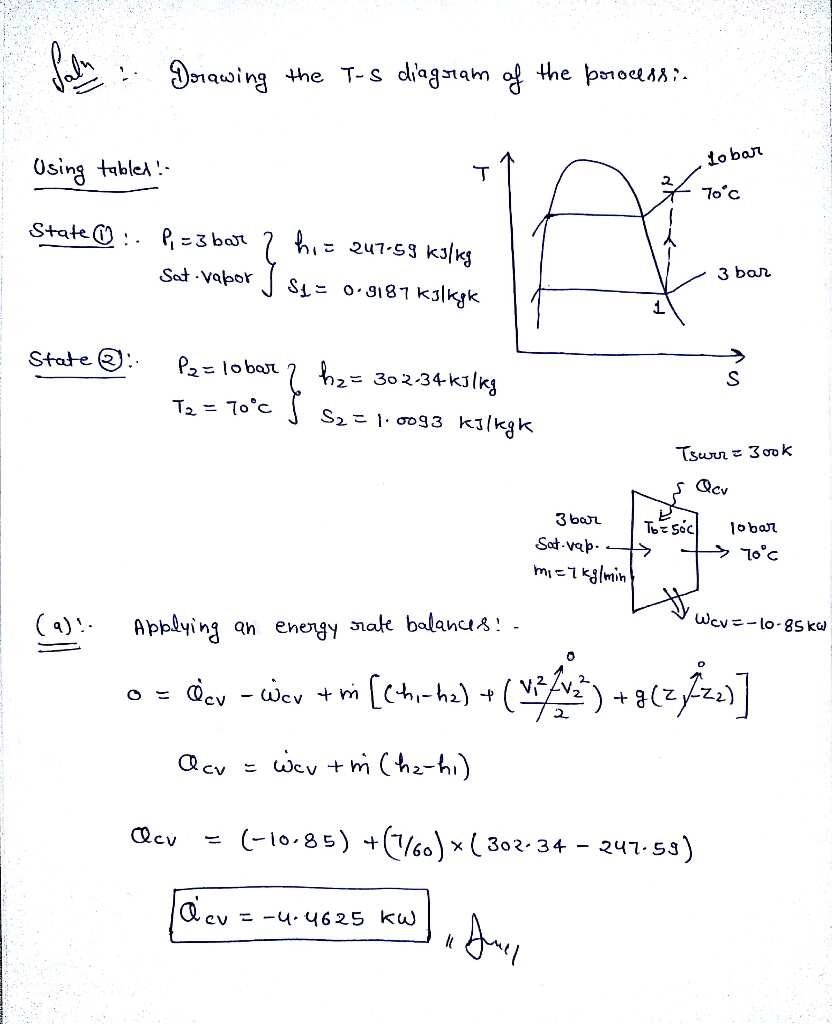 Soln :- Drawing the T-S diagram of the process:-
Using tables:-
State ① :- P₁ = 3 bar
Sat. vapor
} h₁ = 247.59 kJ/kg
S₁ = 0.9187 kJ/kgk
T
10 bar
2
70°C
3 bar
1
S
State ② :- P₂ = 10 bar
T₂ = 70°C
} h₂ = 302.34 kJ/kg
S₂ = 1.0093 kJ/kgk
Tsurr = 300k
Qcv
3 bar
Sat. vap.
m₁ = 7 kg/min
Tb = 50c
10 bar
70°C
Wcv = -10.85 kw
(a) :- Applying an energy rate balances:-
0 = Q̇cv - ẇcv + ṁ [(h₁-h₂) + (V₁²-V₂²/2)→0 + g(z₁-z₂)→0]
Qcv = ẇcv + ṁ (h₂-h₁)
Qcv = (-10.85) + (7/60) × (302.34 - 247.59)
Q̇cv = -4.4625 kw
Ans